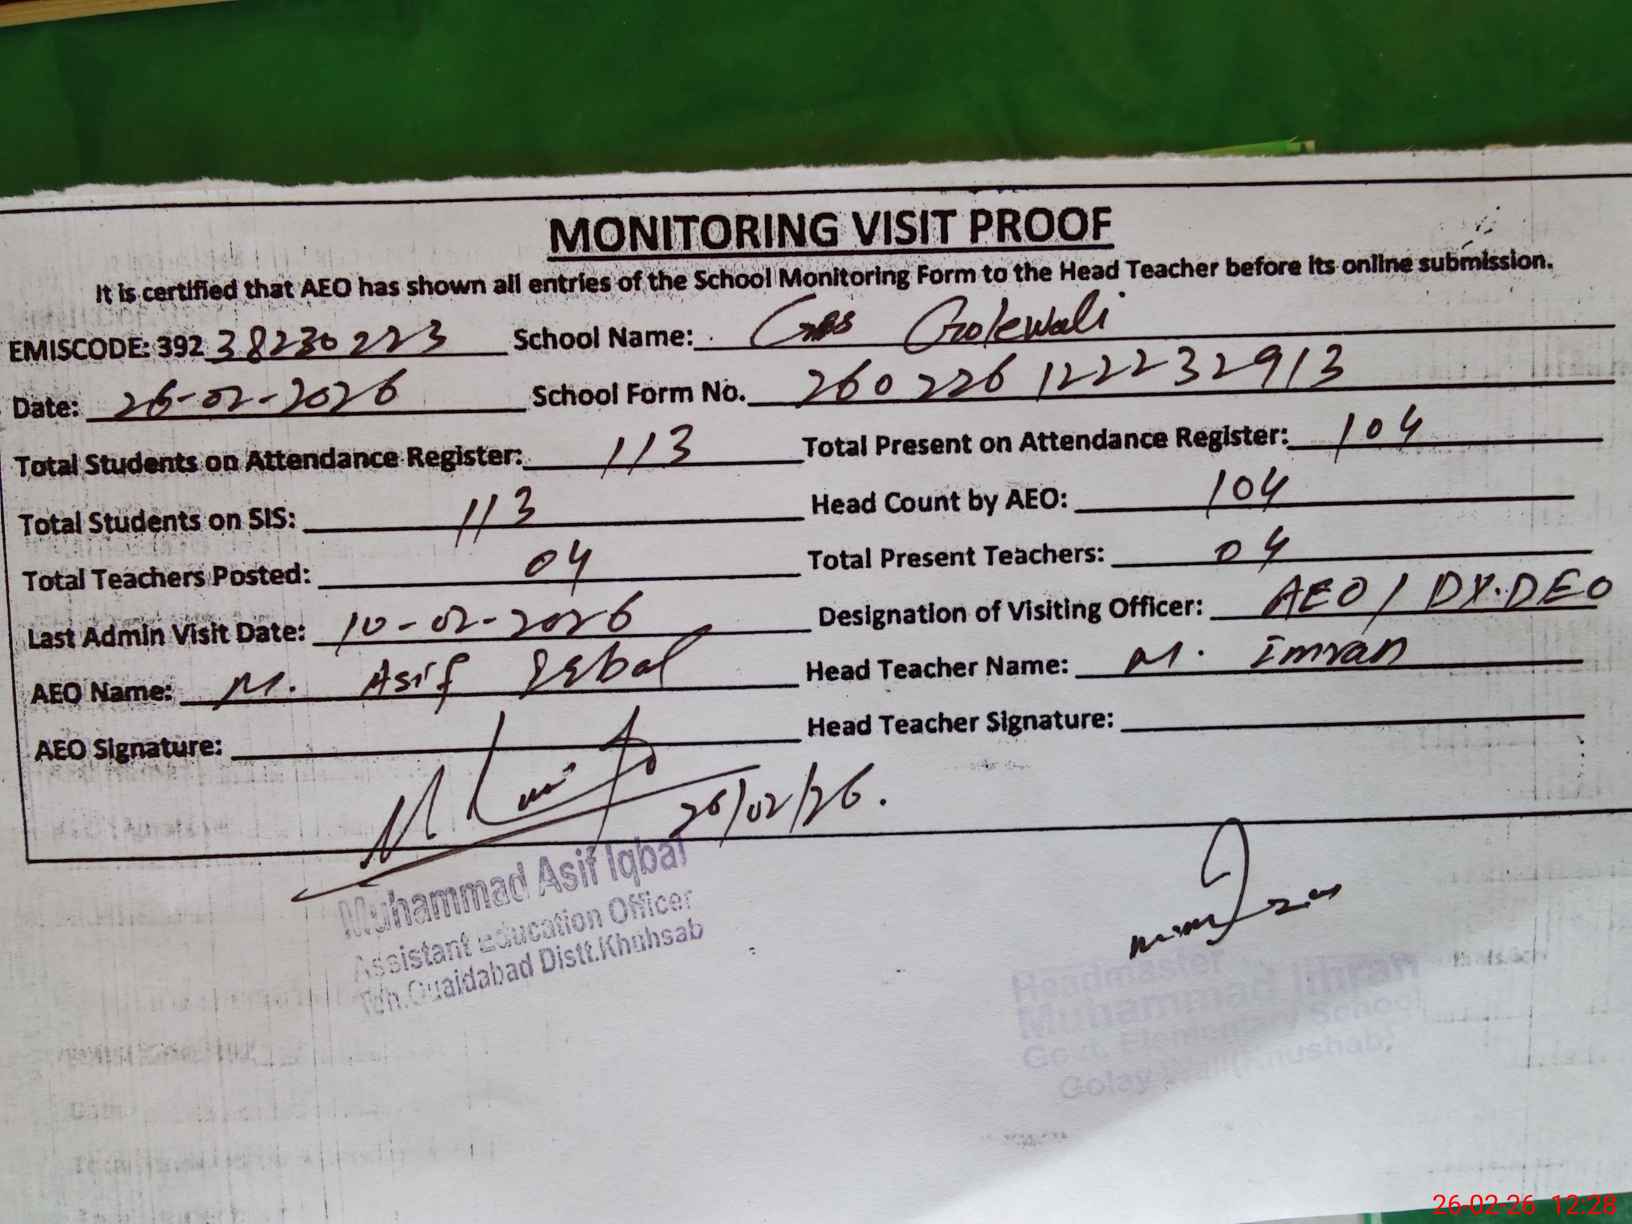 MONITORING VISIT PROOF
It is certified that AEO has shown all entries of the School Monitoring Form to the Head Teacher before its online submission.
EMISCODE: 392 38230223 School Name: Golewali
Date: 26-02-2026 School Form No. 260226122232913
Total Students on Attendance Register: 113 Total Present on Attendance Register: 104
Total Students on SIS: 113 Head Count by AEO: 104
Total Teachers Posted: 04 Total Present Teachers: 04
Last Admin Visit Date: 10-02-2026 Designation of Visiting Officer: AEO / DY.DEO
AEO Name: M. Asif Iqbal Head Teacher Name: M. Imran
AEO Signature: Head Teacher Signature:
26/02/26.
Muhammad Asif Iqbal
Assistant Education Officer
Teh.Quaidabad Distt.Khuhsab
Headmaster
Muhammad Imran
Govt. Elementary School
Golay Wali(Khushab)
26-02-26 12:28